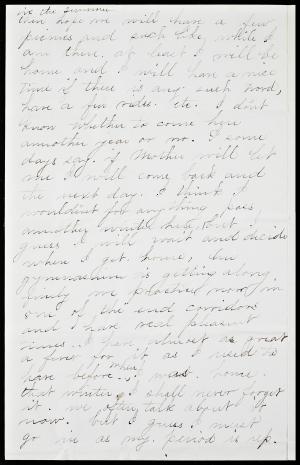 in the summer
then hope we will have a few
picnics and such like while I
am there, at least I will be
home and I will have a nice
time if there is any such word,
have a few rides. etc. I don't
know whether to come here
annother year or no. I some
days say if Mother will let
me I will come back and
the next day. I think I
wouldn't for anything pass
annother winter here, but I
guess I will wait and decide
when I get home, Our
gymnasium is getting along
finely we practised now in
one of the end corridors
and I have real pleasant
times. I have almost as great
a fever for it as I used to
have before. when I was home
that winter. I shall never forget
it. we often talk about it
now. but I guess I must
go in as my period is up.